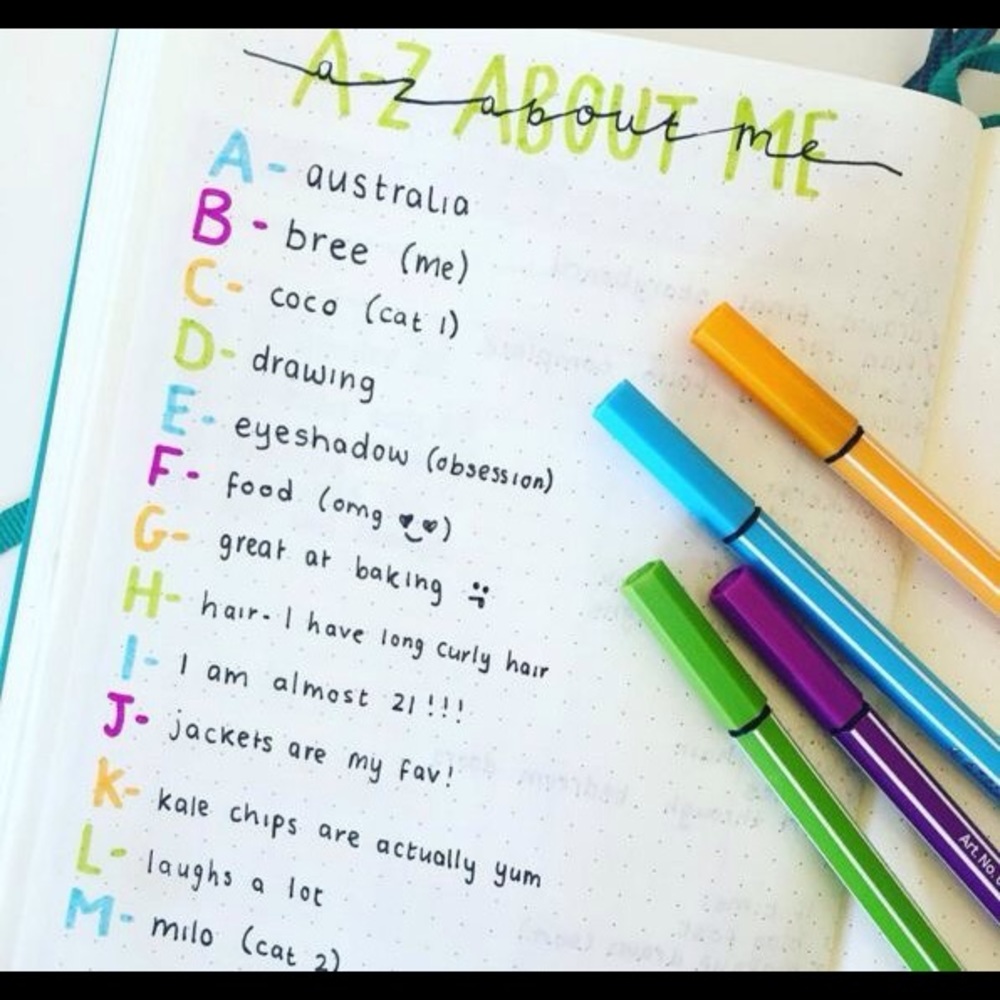 A-Z ABOUT ME
a z about me
A- australia
B- bree (me)
C- coco (cat 1)
D- drawing
E- eyeshadow (obsession)
F- food (omg 😍)
G- great at baking :)
H- hair- I have long curly hair
I- I am almost 21!!!
J- jackets are my fav!
K- kale chips are actually yum
L- laughs a lot
M- milo (cat 2)
Art. No.